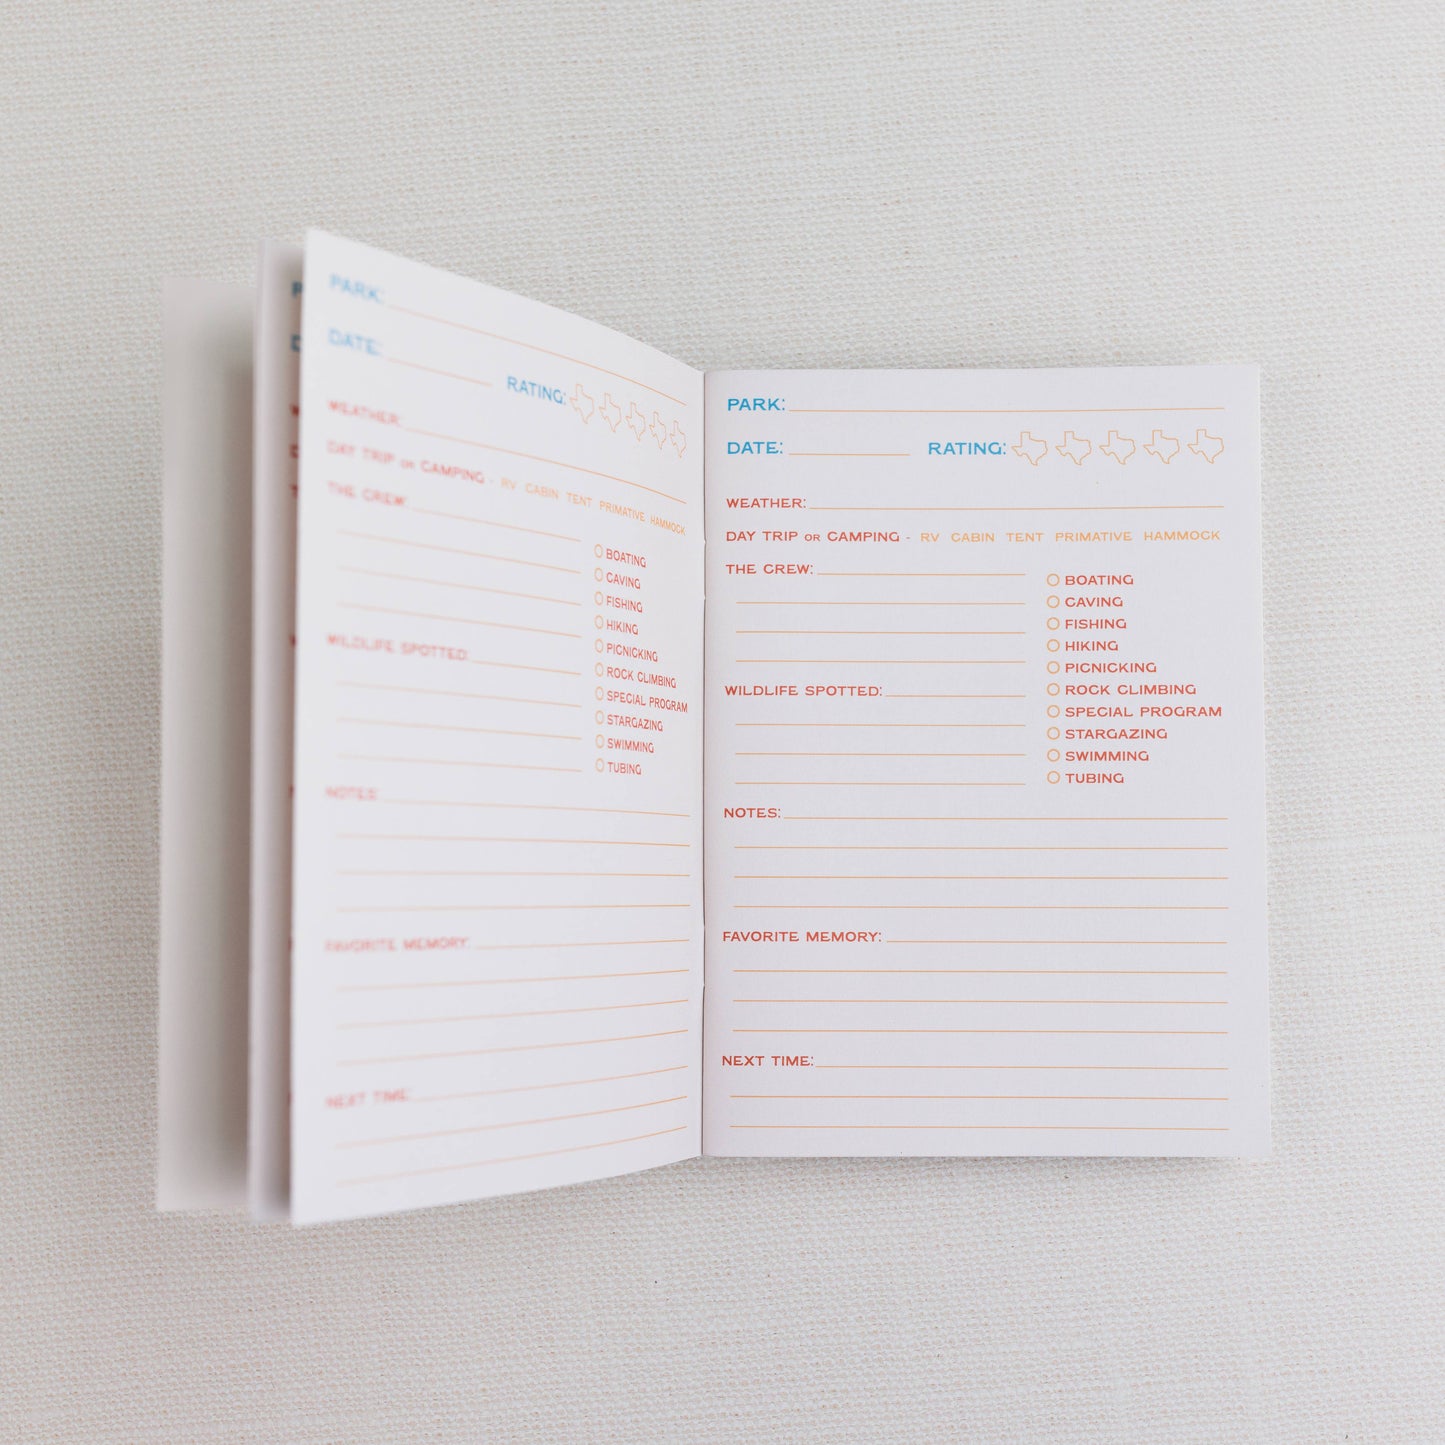 PARK:
DATE:
RATING:
WEATHER:
DAY TRIP OR CAMPING - RV CABIN TENT PRIMATIVE HAMMOCK
THE CREW:
BOATING
CAVING
FISHING
HIKING
PICNICKING
ROCK CLIMBING
SPECIAL PROGRAM
STARGAZING
SWIMMING
TUBING
WILDLIFE SPOTTED:
NOTES:
FAVORITE MEMORY:
NEXT TIME:
PARK:
DATE: RATING:
WEATHER:
DAY TRIP OR CAMPING - RV CABIN TENT PRIMATIVE HAMMOCK
THE CREW:
BOATING
CAVING
FISHING
HIKING
PICNICKING
ROCK CLIMBING
SPECIAL PROGRAM
STARGAZING
SWIMMING
TUBING
WILDLIFE SPOTTED:
NOTES:
FAVORITE MEMORY:
NEXT TIME: